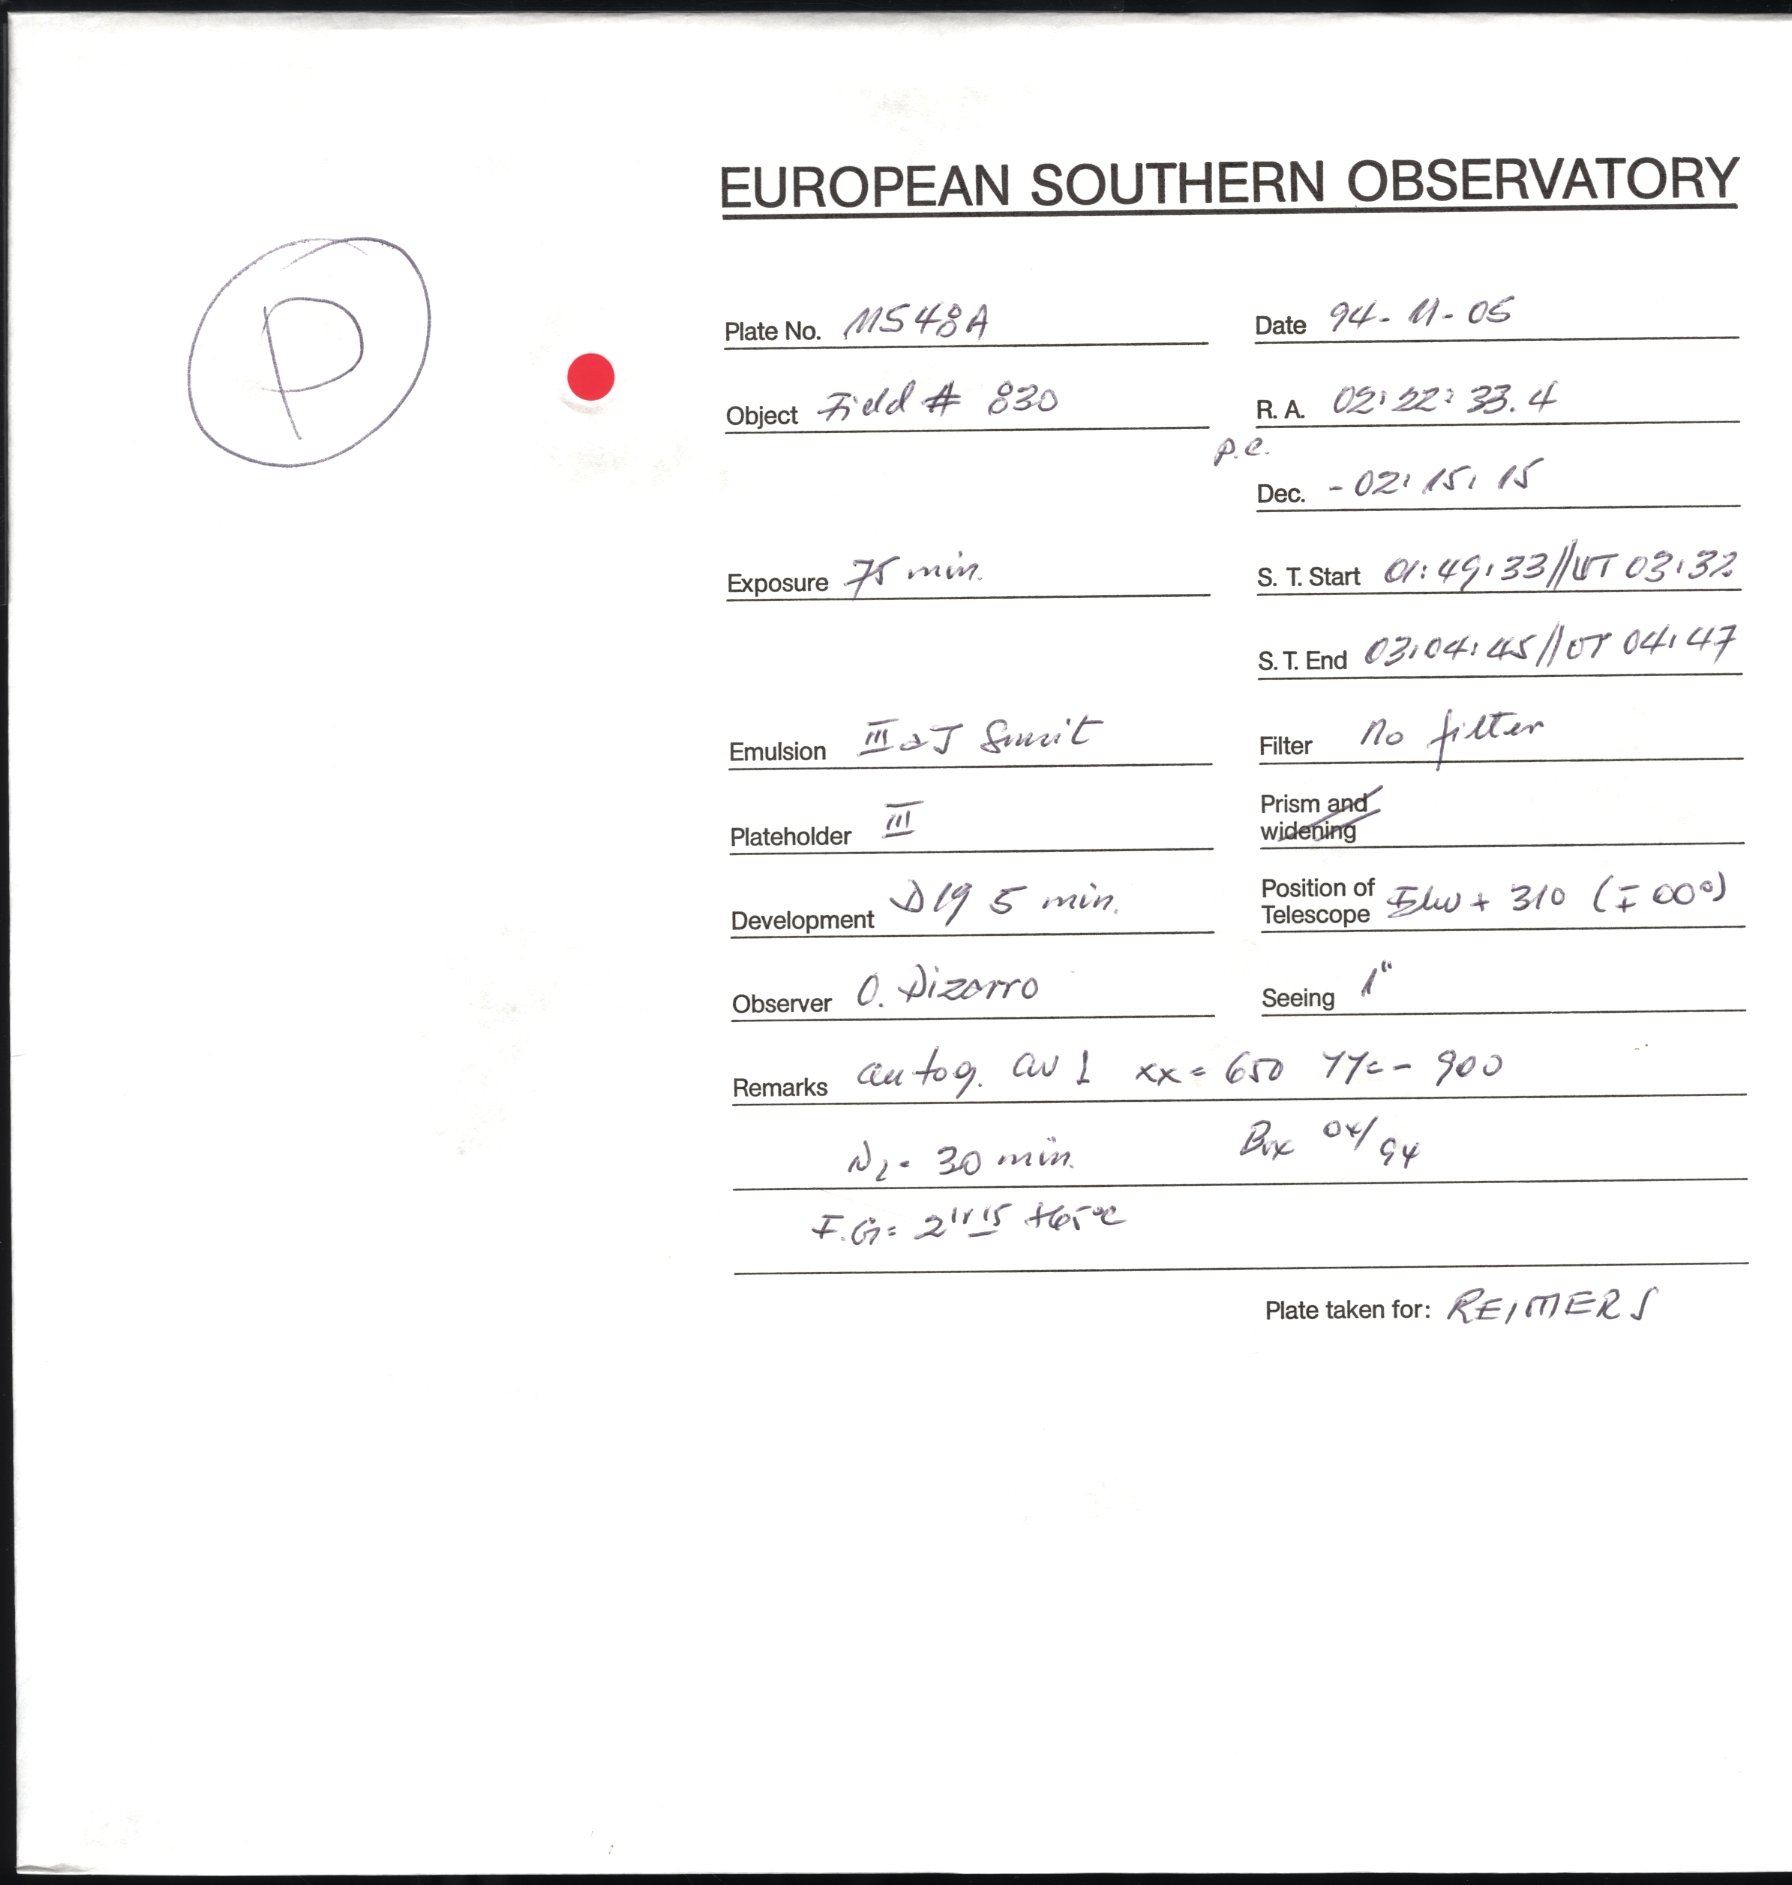 EUROPEAN SOUTHERN OBSERVATORY
P
Plate No. 11548A
Date 94-11-05
Object Field # 830
R. A. 02:22:33.4
p.e.
Dec. -02:15:15
Exposure 75 min.
S. T. Start 01:49:33//UT 03:32
S. T. End 03:04:45//UT 04:47
Emulsion III a J
Filter No filter
Plateholder III
Prism and
widening
Development D19 5 min.
Position of
Telescope + 310
Observer O. Pizarro
Seeing 1"
Remarks autog. xx = 650 YY = - 900
N2 = 30 min. Box 04/94
F.G = +65°C
Plate taken for: REIMERS